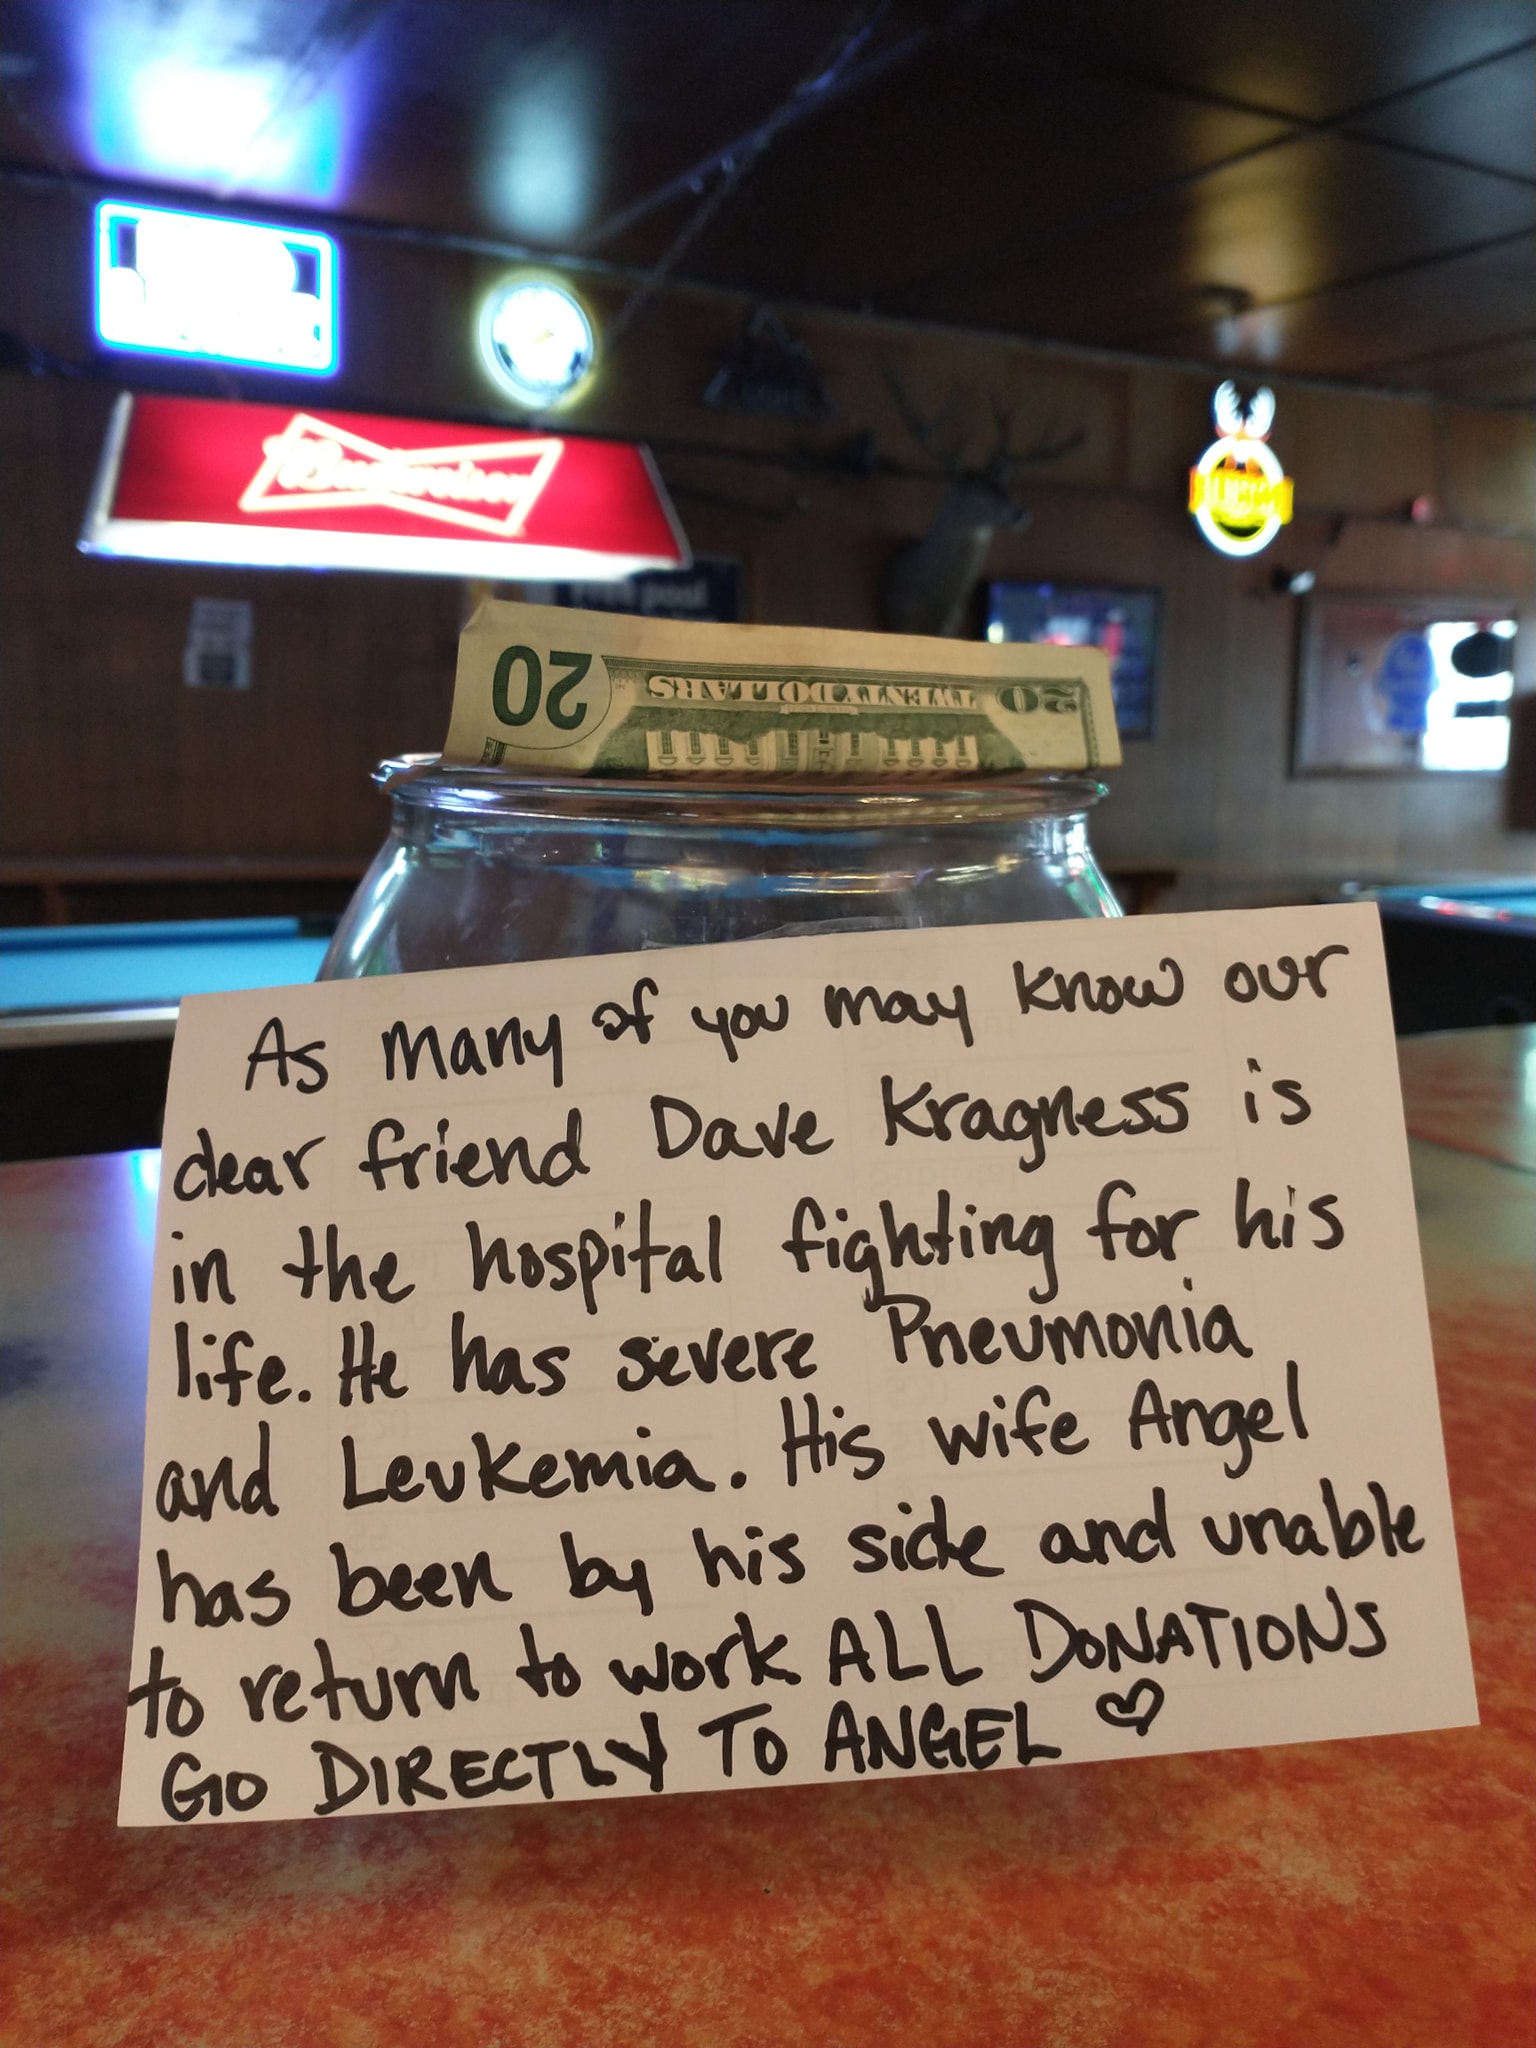 Budweiser
Free pool
20
TWENTY DOLLARS
20
As many of you may know our
dear friend Dave Kragness is
in the hospital fighting for his
life. He has severe Pneumonia
and Leukemia. His wife Angel
has been by his side and unable
to return to work. ALL DONATIONS
GO DIRECTLY TO ANGEL ♡